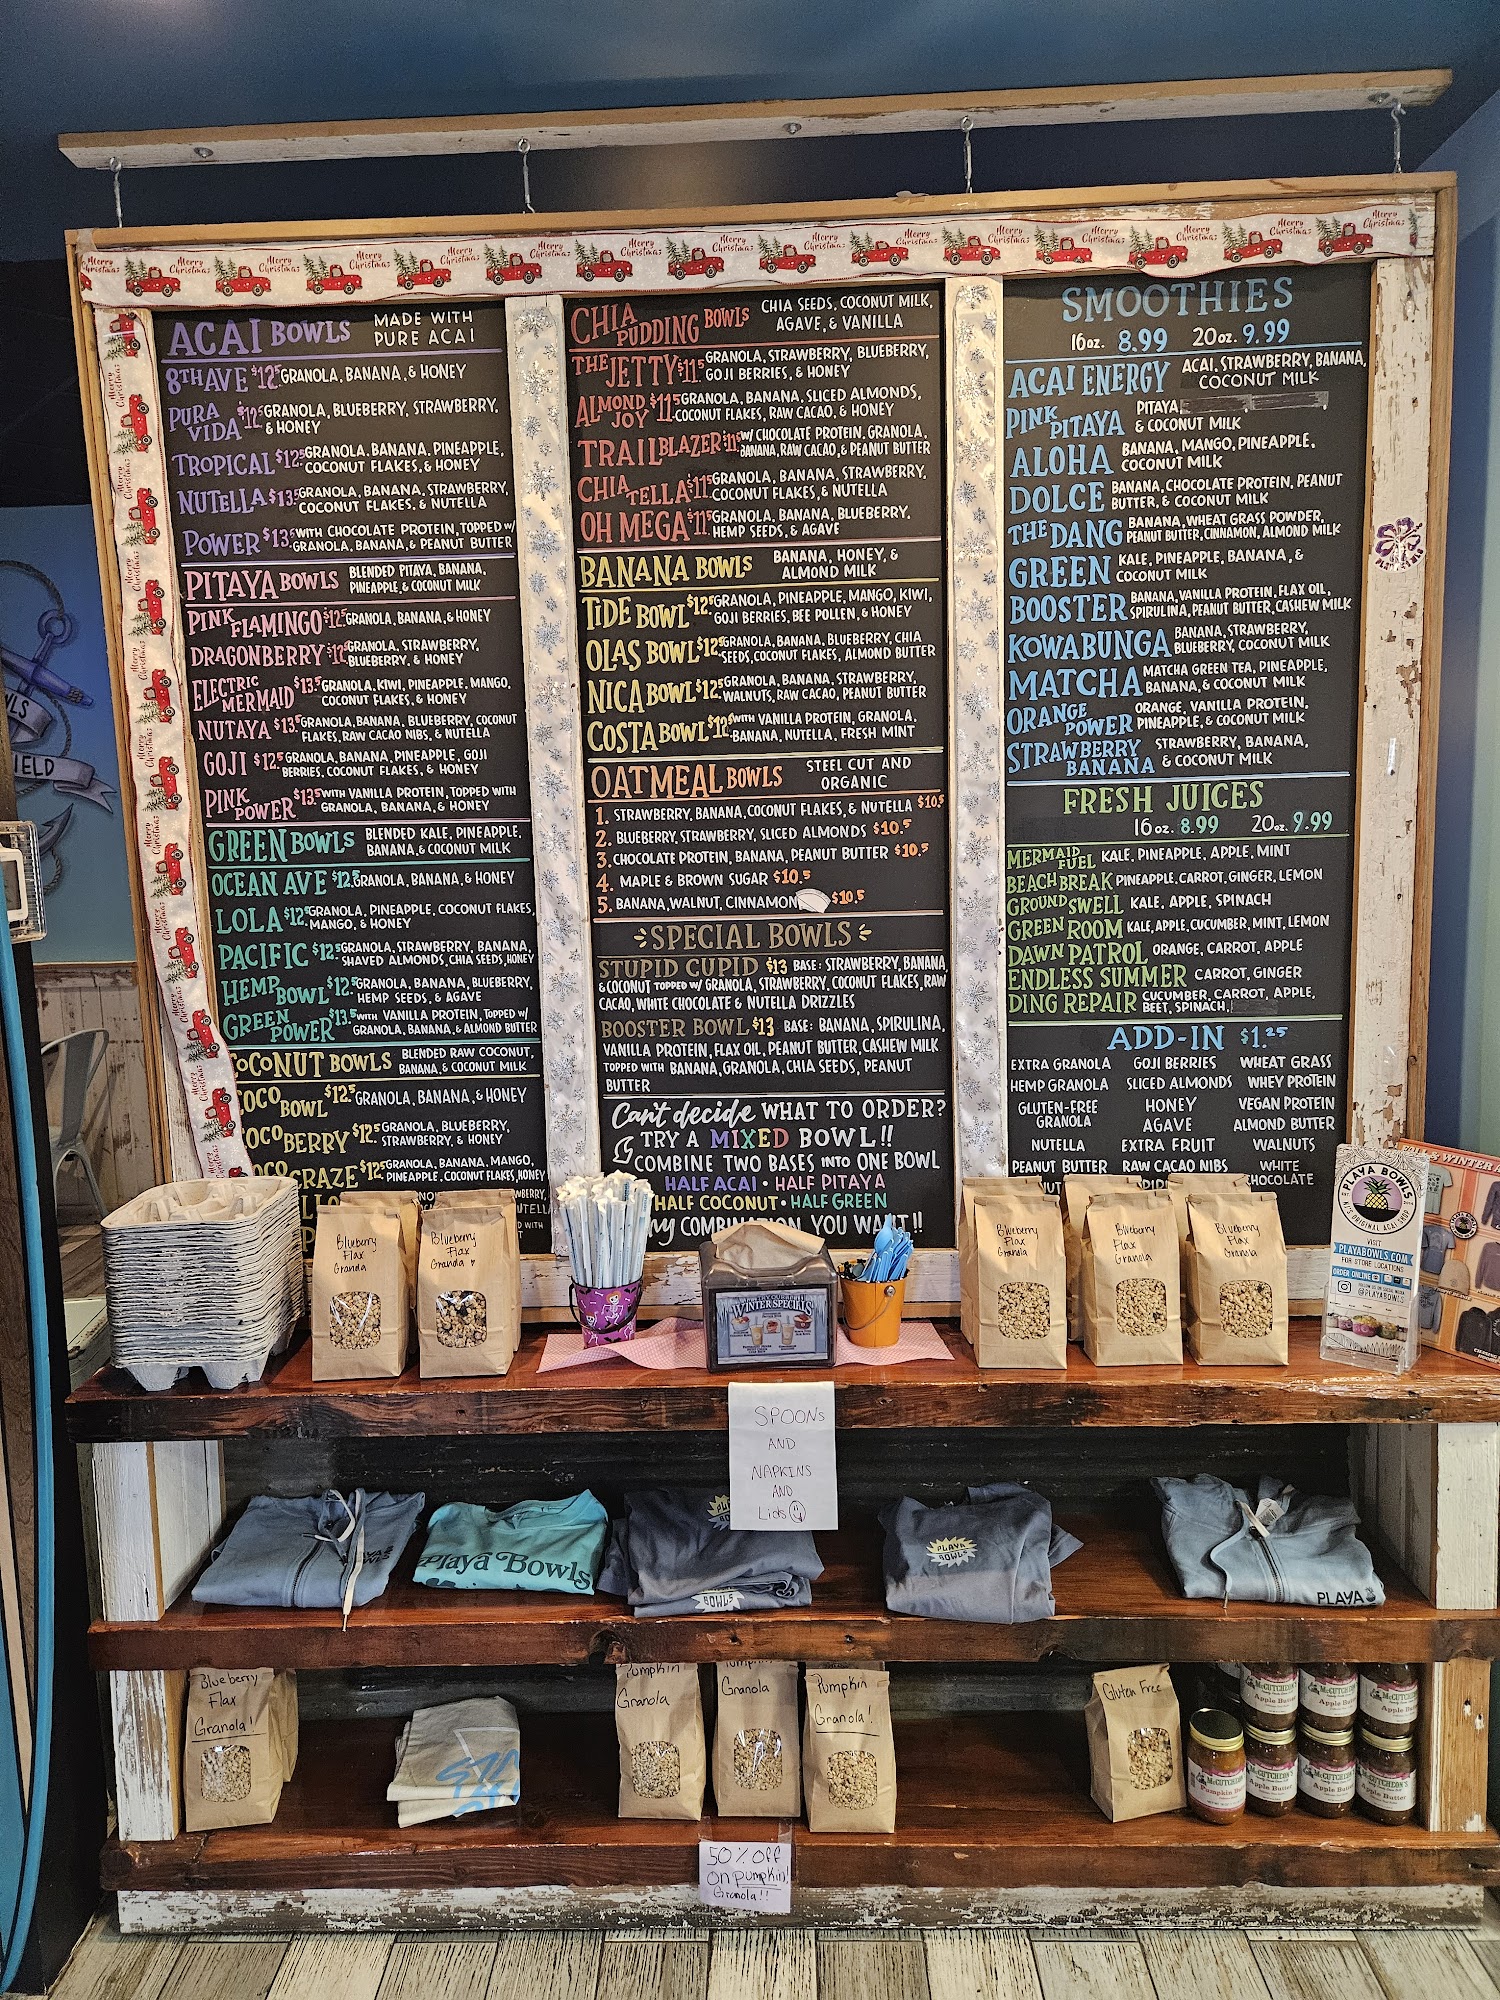 ACAI BOWLS MADE WITH
PURE ACAI
8TH AVE $12.5 GRANOLA, BANANA, & HONEY
PURA VIDA $12.5 GRANOLA, BLUEBERRY, STRAWBERRY,
& HONEY
TROPICAL $12.5 GRANOLA, BANANA, PINEAPPLE,
COCONUT FLAKES, & HONEY
NUTELLA $13.5 GRANOLA, BANANA, STRAWBERRY,
COCONUT FLAKES, & NUTELLA
POWER $13.5 WITH CHOCOLATE PROTEIN, TOPPED W/
GRANOLA, BANANA, & PEANUT BUTTER
PITAYA BOWLS BLENDED PITAYA, BANANA,
PINEAPPLE, & COCONUT MILK
PINK FLAMINGO $12.5 GRANOLA, BANANA, & HONEY
DRAGONBERRY GRANOLA, STRAWBERRY,
BLUEBERRY, & HONEY
ELECTRIC MERMAID $13.5 GRANOLA, KIWI, PINEAPPLE, MANGO,
COCONUT FLAKES, & HONEY
NUTAYA $13.5 GRANOLA, BANANA, BLUEBERRY, COCONUT
FLAKES, RAW CACAO NIBS, & NUTELLA
GOJI $12.5 GRANOLA, BANANA, PINEAPPLE, GOJI
BERRIES, COCONUT FLAKES, & HONEY
PINK POWER $13.5 WITH VANILLA PROTEIN, TOPPED WITH
GRANOLA, BANANA, & HONEY
GREEN BOWLS BLENDED KALE, PINEAPPLE,
BANANA, & COCONUT MILK
OCEAN AVE $12.5 GRANOLA, BANANA, & HONEY
LOLA $12.5 GRANOLA, PINEAPPLE, COCONUT FLAKES,
MANGO, & HONEY
PACIFIC $12.5 GRANOLA, STRAWBERRY, BANANA,
SHAVED ALMONDS, CHIA SEEDS, HONEY
HEMP BOWL $12.5 GRANOLA, BANANA, BLUEBERRY,
HEMP SEEDS, & AGAVE
GREEN POWER $13.5 WITH VANILLA PROTEIN, TOPPED W/
GRANOLA, BANANA, & ALMOND BUTTER
COCONUT BOWLS BLENDED RAW COCONUT,
BANANA, & COCONUT MILK
COCO BOWL $12.5 GRANOLA, BANANA, & HONEY
COCO BERRY $12.5 GRANOLA, BLUEBERRY,
STRAWBERRY, & HONEY
COCO CRAZE $12.5 GRANOLA, BANANA, MANGO,
PINEAPPLE, COCONUT FLAKES, HONEY
CHIA PUDDING BOWLS CHIA SEEDS, COCONUT MILK,
AGAVE, & VANILLA
THE JETTY $11.5 GRANOLA, STRAWBERRY, BLUEBERRY,
GOJI BERRIES, & HONEY
ALMOND JOY $11.5 GRANOLA, BANANA, SLICED ALMONDS,
COCONUT FLAKES, RAW CACAO, & HONEY
TRAILBLAZER $11.5 W/ CHOCOLATE PROTEIN, GRANOLA,
BANANA, RAW CACAO, & PEANUT BUTTER
CHIA TELLA $11.5 GRANOLA, BANANA, STRAWBERRY,
COCONUT FLAKES, & NUTELLA
OH MEGA $11.5 GRANOLA, BANANA, BLUEBERRY,
HEMP SEEDS, & AGAVE
BANANA BOWLS BANANA, HONEY, &
ALMOND MILK
TIDE BOWL $12.5 GRANOLA, PINEAPPLE, MANGO, KIWI,
GOJI BERRIES, BEE POLLEN, & HONEY
OLAS BOWL $12.5 GRANOLA, BANANA, BLUEBERRY, CHIA
SEEDS, COCONUT FLAKES, ALMOND BUTTER
NICA BOWL $12.5 GRANOLA, BANANA, STRAWBERRY,
WALNUTS, RAW CACAO, PEANUT BUTTER
COSTA BOWL $12.5 WITH VANILLA PROTEIN, GRANOLA,
BANANA, NUTELLA, FRESH MINT
OATMEAL BOWLS STEEL CUT AND
ORGANIC
1. STRAWBERRY, BANANA, COCONUT FLAKES, & NUTELLA $10.5
2. BLUEBERRY, STRAWBERRY, SLICED ALMONDS $10.5
3. CHOCOLATE PROTEIN, BANANA, PEANUT BUTTER $10.5
4. MAPLE & BROWN SUGAR $10.5
5. BANANA, WALNUT, CINNAMON $10.5
SPECIAL BOWLS
STUPID CUPID $13 BASE: STRAWBERRY, BANANA,
& COCONUT TOPPED W/ GRANOLA, STRAWBERRY, COCONUT FLAKES, RAW
CACAO, WHITE CHOCOLATE & NUTELLA DRIZZLES
BOOSTER BOWL $13 BASE: BANANA, SPIRULINA,
VANILLA PROTEIN, FLAX OIL, PEANUT BUTTER, CASHEW MILK
TOPPED WITH BANANA, GRANOLA, CHIA SEEDS, PEANUT
BUTTER
Can't decide WHAT TO ORDER?
TRY A MIXED BOWL!!
COMBINE TWO BASES INTO ONE BOWL
HALF ACAI • HALF PITAYA
HALF COCONUT • HALF GREEN
Any COMBINATION YOU WANT!!
SMOOTHIES
16oz. 8.99 20oz. 9.99
ACAI ENERGY ACAI, STRAWBERRY, BANANA,
COCONUT MILK
PINK PITAYA PITAYA
& COCONUT MILK
ALOHA BANANA, MANGO, PINEAPPLE,
COCONUT MILK
DOLCE BANANA, CHOCOLATE PROTEIN, PEANUT
BUTTER, & COCONUT MILK
THE DANG BANANA, WHEAT GRASS POWDER,
PEANUT BUTTER, CINNAMON, ALMOND MILK
GREEN KALE, PINEAPPLE, BANANA, &
COCONUT MILK
BOOSTER BANANA, VANILLA PROTEIN, FLAX OIL,
SPIRULINA, PEANUT BUTTER, CASHEW MILK
KOWABUNGA BANANA, STRAWBERRY,
BLUEBERRY, COCONUT MILK
MATCHA MATCHA GREEN TEA, PINEAPPLE,
BANANA, & COCONUT MILK
ORANGE POWER ORANGE, VANILLA PROTEIN,
PINEAPPLE, & COCONUT MILK
STRAWBERRY BANANA STRAWBERRY, BANANA,
& COCONUT MILK
FRESH JUICES
16oz. 8.99 20oz. 9.99
MERMAID FUEL KALE, PINEAPPLE, APPLE, MINT
BEACH BREAK PINEAPPLE, CARROT, GINGER, LEMON
GROUND SWELL KALE, APPLE, SPINACH
GREEN ROOM KALE, APPLE, CUCUMBER, MINT, LEMON
DAWN PATROL ORANGE, CARROT, APPLE
ENDLESS SUMMER CARROT, GINGER
DING REPAIR CUCUMBER, CARROT, APPLE,
BEET, SPINACH,
ADD-IN $1.25
EXTRA GRANOLA GOJI BERRIES WHEAT GRASS
HEMP GRANOLA SLICED ALMONDS WHEY PROTEIN
GLUTEN-FREE GRANOLA HONEY VEGAN PROTEIN
AGAVE ALMOND BUTTER
NUTELLA EXTRA FRUIT WALNUTS
PEANUT BUTTER RAW CACAO NIBS WHITE CHOCOLATE
Merry Christmas
Blueberry Flax Granola
Blueberry Flax Granola
WINTER SPECIALS
Blueberry Flax Granola
Blueberry Flax Granola
Blueberry Flax Granola
PLAYA BOWLS
NJ'S ORIGINAL ACAI SHOP
VISIT
PLAYABOWLS.COM
FOR STORE LOCATIONS
ORDER ONLINE
@PLAYABOWLS
SPOONS
AND
NAPKINS
AND
Lids
Playa Bowls
PLAYA BOWLS
BOWLS
PLAYA
Blueberry
Flax
Granola!
Pumpkin
Granola
Pumpkin
Granola
Pumpkin
Granola!
Gluten Free
McCUTCHEON'S
Apple Butter
Pumpkin
50% Off
On pumpkin!
Granola!!